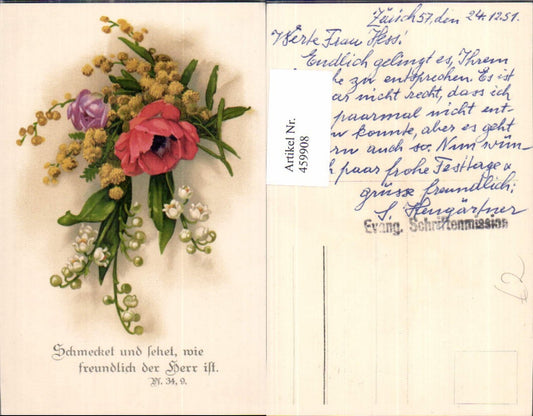 Schmecket und sehet, wie
freundlich der Herr ist.
Ps. 34, 9.
Zürich 57, den 24.12.51.
Werte Frau Hess!
Endlich gelingt es, Ihrem
zu entsprechen. Es ist
nicht recht, dass ich
paarmal nicht ent-
konnte, aber es geht
auch so. Nun wün-
paar frohe Festtage &
grüsse freundlich:
S. Hengärtner
Evang. Schriftenmission
Artikel Nr.
459908
62